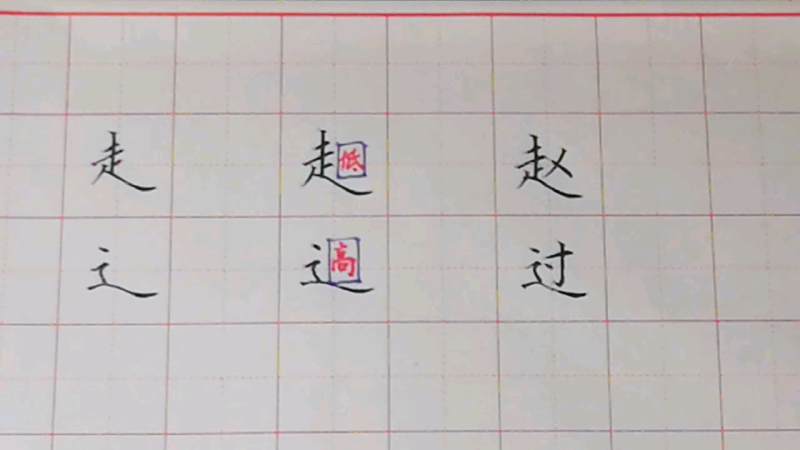 走 走低 赵
辶 辶高 过